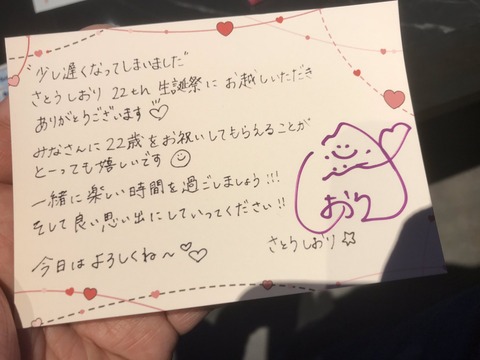 "少し遅くなってしまいました"
さとうしおり 22th 生誕祭にお越しいただき
ありがとうございます♡
みなさんに22歳をお祝いしてもらえることが
とーっても嬉しいです☺
一緒に楽しい時間を過ごしましょう!!!
そして良い思い出にしていってください!!
今日はよろしくね〜♡♡
おり
さとうしおり☆